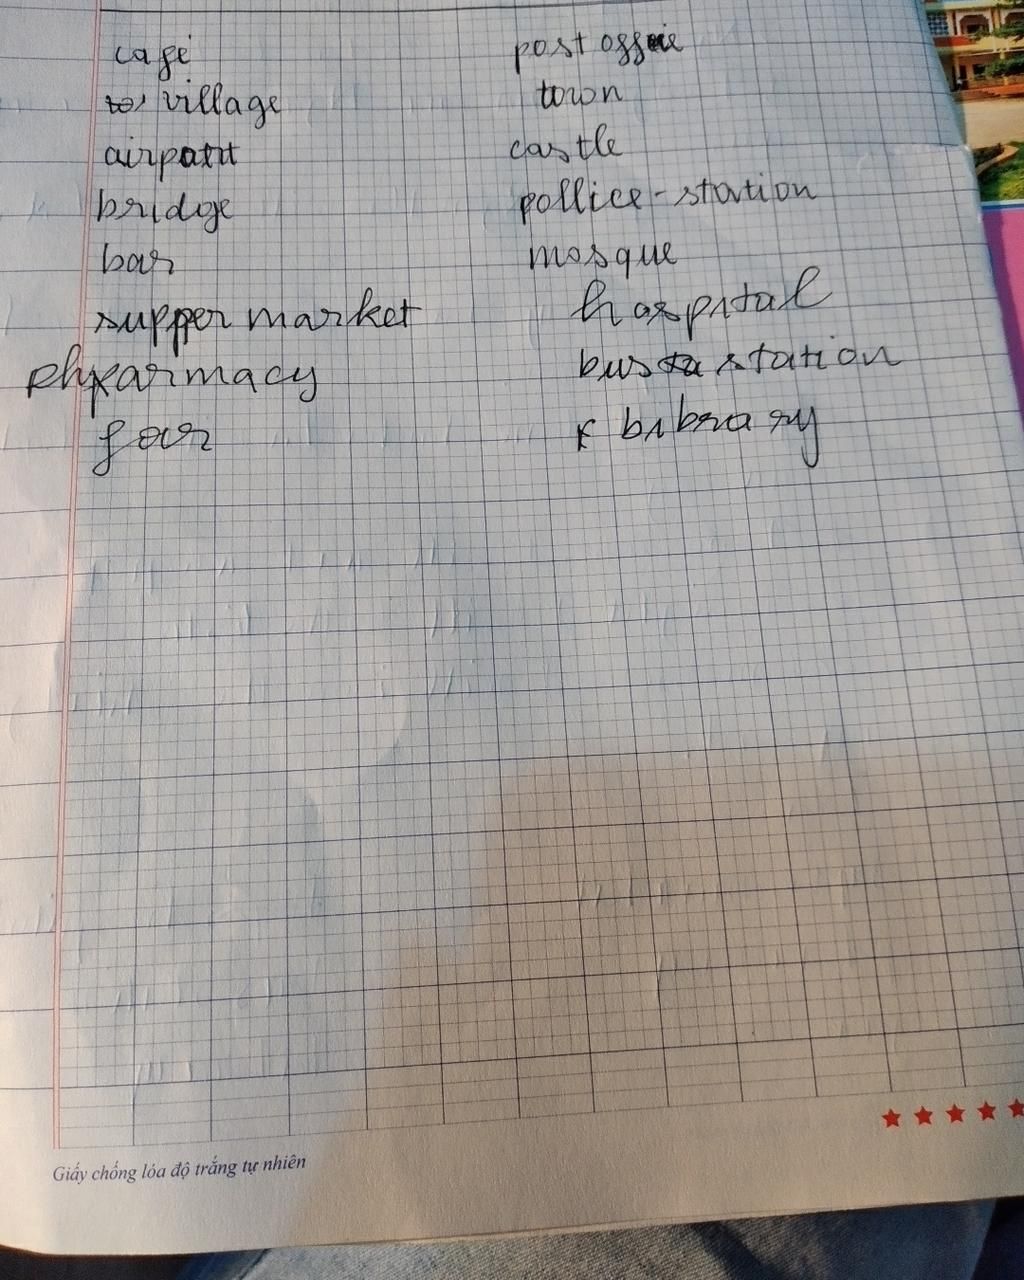 cafe post offie
village town
airpott castle
bridge pollice-station
bar mosque
supper market hospital
pharmacy bus station
four bibrary
Giấy chống lóa độ trắng tự nhiên